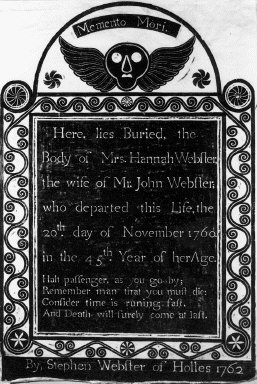 Memento Mori.
Here, lies Buried, the
Body of Mrs. Hannah Webster,
the wife of Mr. John Webster,
who departed this Life, the
20th day of November 1760
in the 45th Year of her Age.
Halt passenger, as you go by;
Remember man that you must die;
Consider time is runing fast,
And Death will surely come at last.
By, Stephen Webster of Holles 1762